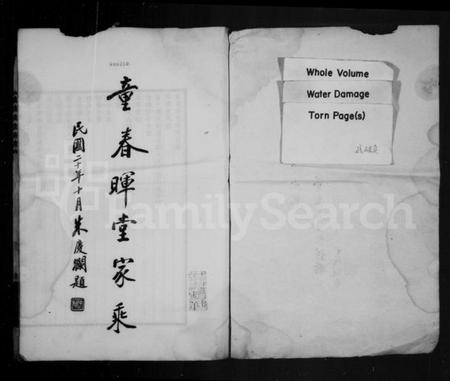 童春暉堂家乘
民國二十年十月朱慶瀾題
Whole Volume
Water Damage
Torn Page(s)
FamilySearch